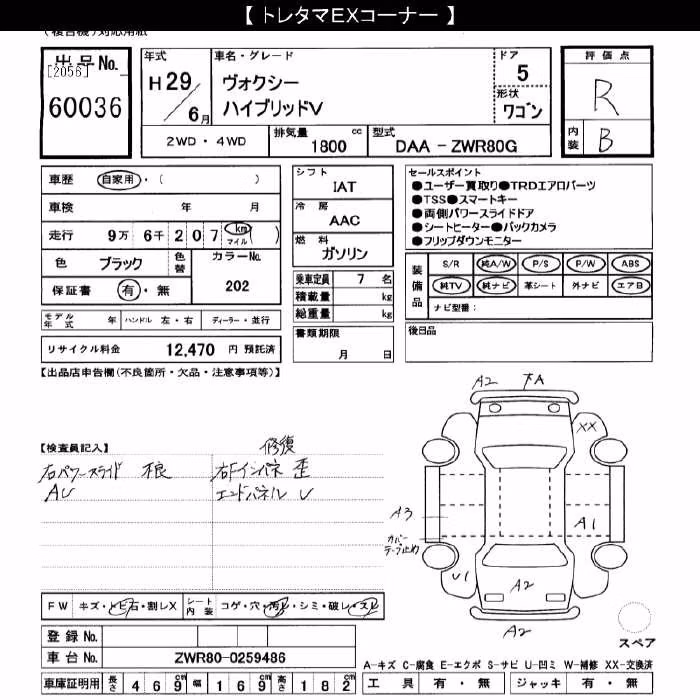 【 トレタマEXコーナー 】
(複合機)対応用紙
出品No.
[2056]
60036
年式
H 29/6月
車名・グレード
ヴォクシー
ハイブリッドV
ドア
5
形状
ワゴン
評価点
R
内装 B
2WD・4WD
排気量 1800 cc
型式 DAA-ZWR80G
車歴 自家用・( )
車検 年 月
走行 9万 6千 2 0 7 km マイル ( )
色 ブラック 色替 カラーNo. 202
保証書 有・無
シフト
IAT
冷房
AAC
燃料
ガソリン
乗車定員 7 名
積載量 kg
総重量 kg
書類期限
月 日
セールスポイント
●ユーザー買取り●TRDエアロパーツ
●TSS●スマートキー
●両側パワースライドドア
●シートヒーター●バックカメラ
●フリップダウンモニター
装備品
S/R 純A/W P/S P/W ABS
純TV 純ナビ 革シート 外ナビ エアB
ナビ型番:
後日品
モデル年式 年 ハンドル 左・右 ディーラー・並行
リサイクル料金 12,470 円 預託済
【出品店申告欄(不良箇所・欠品・注意事項等)】
【検査員記入】
修復
右パワースライド 不良
AU
右Fインパネ 歪
エンドパネル U
A2
下A
XX
A3
カバー
テープ止め
A1
U1
A2
A2
スペア
FW キズ・トビ石・割レX
シート内装 コゲ・穴・汚レ・シミ・破レ・スレ
登録No.
車台No. ZWR80-0259486
車庫証明用 長さ 4 6 9 cm 幅 1 6 9 cm 高さ 1 8 2 cm
A-キズ C-腐食 E-エクボ S-サビ U-凹ミ W-補修 XX-交換済
工具 有・無 ジャッキ 有・無